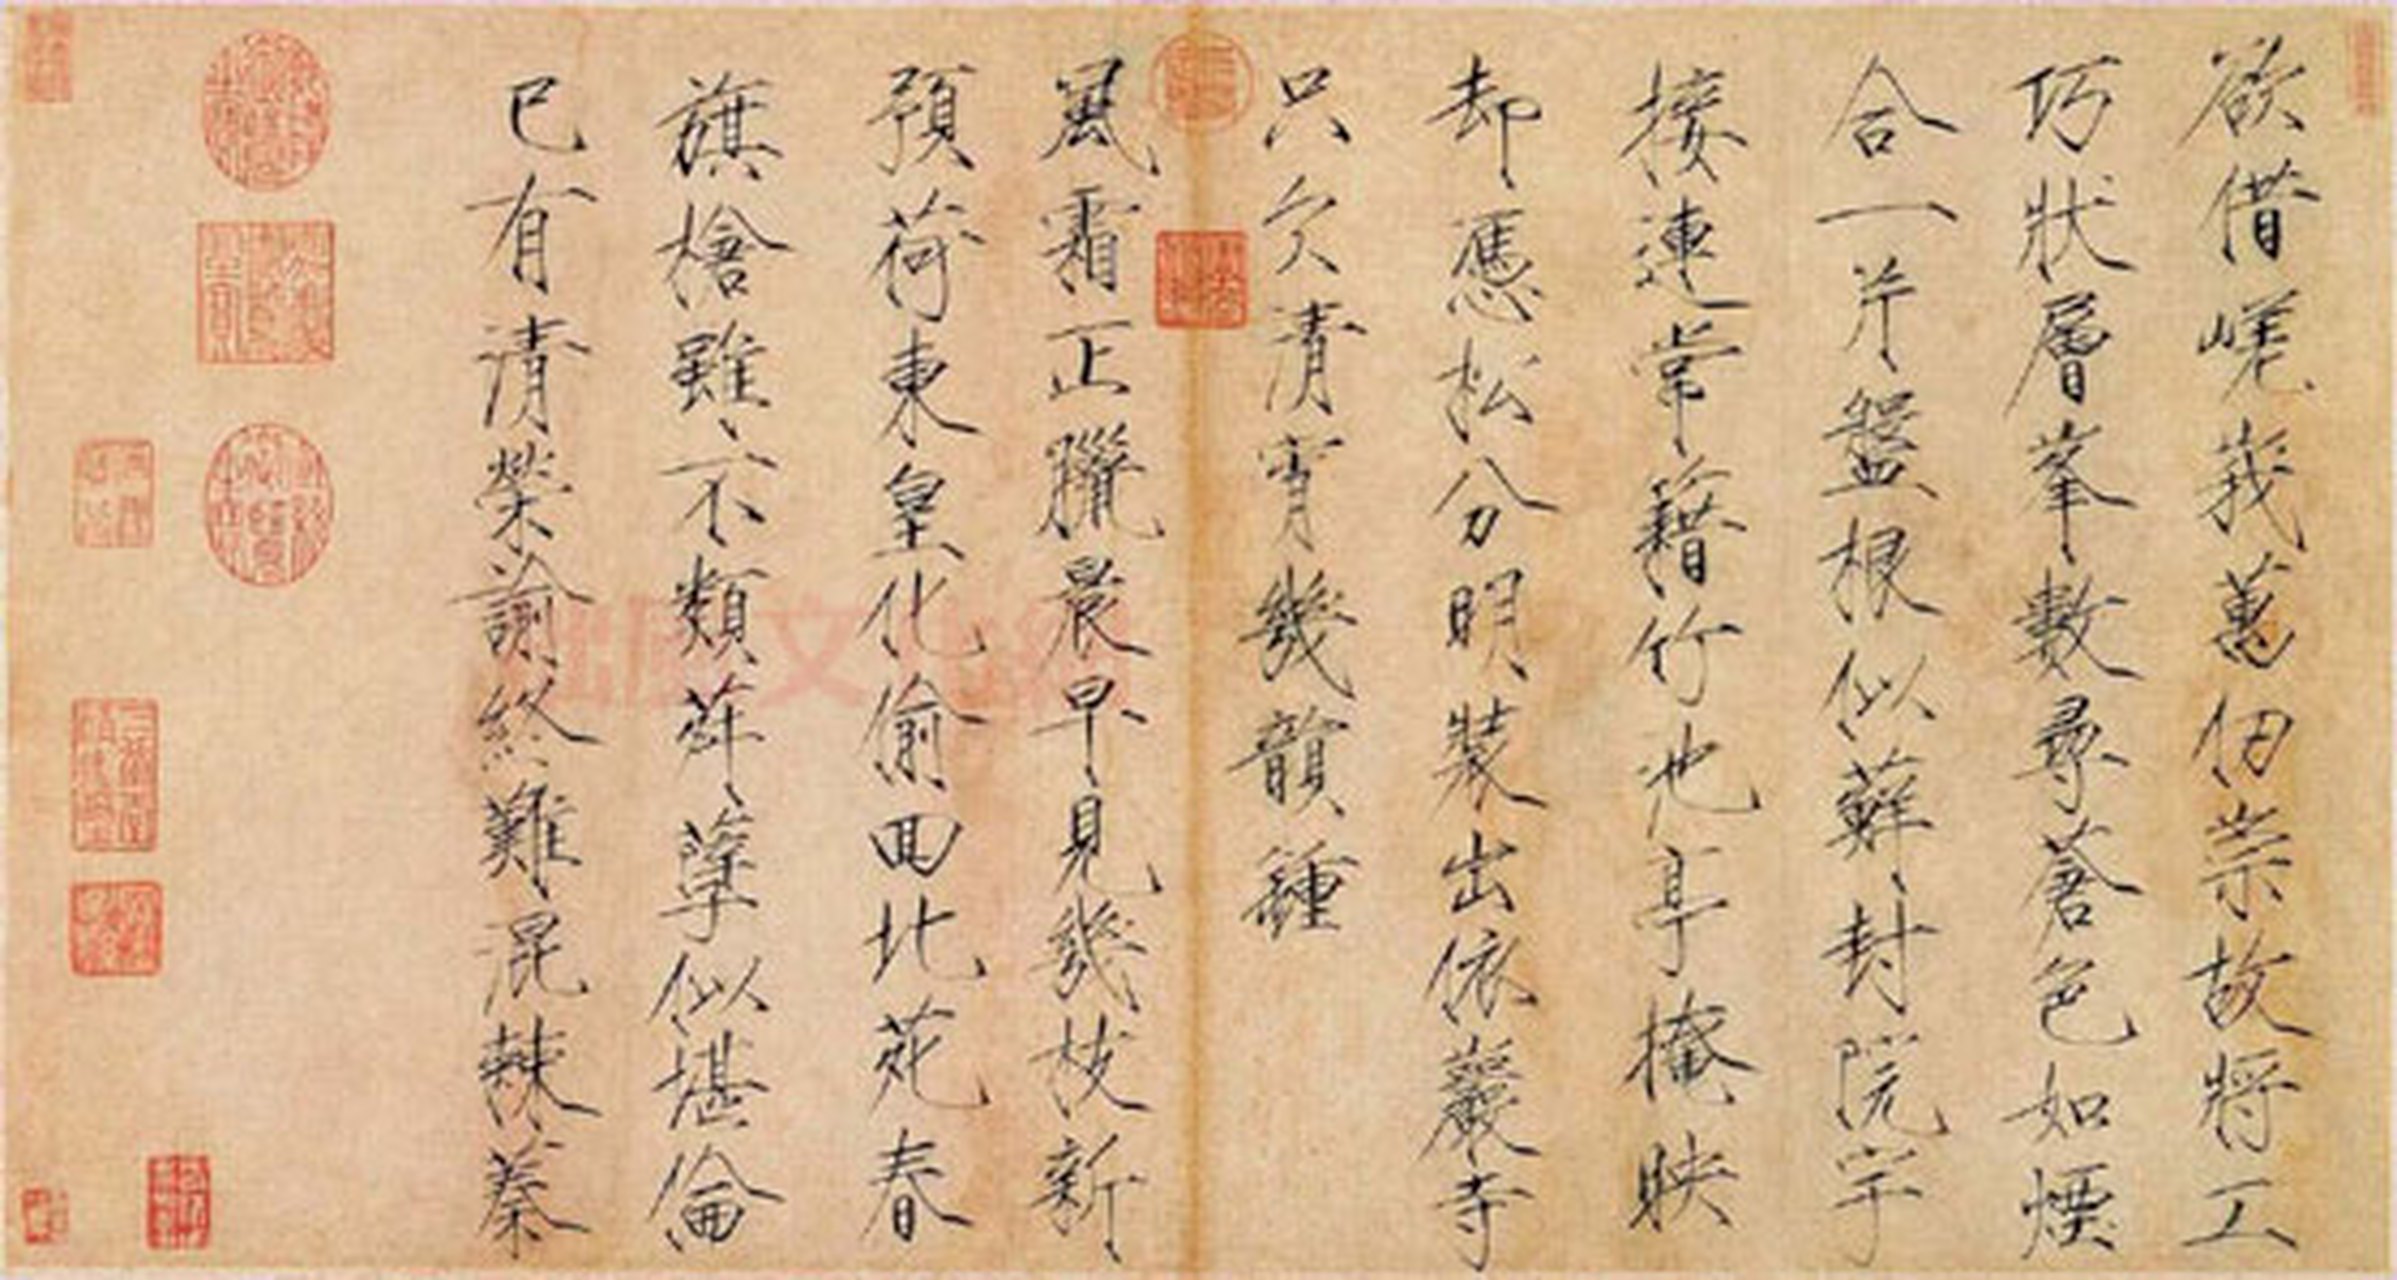 欲借嵯峩萬仞崇故將工
巧狀層峯數尋蒼色如煙
合一片盤根似蘚封院宇
接連常藉竹池亭掩映
却憑松分明裝出依巖寺
只欠清宵幾韻鍾
風霜正臘晨早見幾枝新
預荷東皇化偷囬北苑春
旗槍雖不類荈蕈似堪倫
已有清榮諭終難混棘蓁